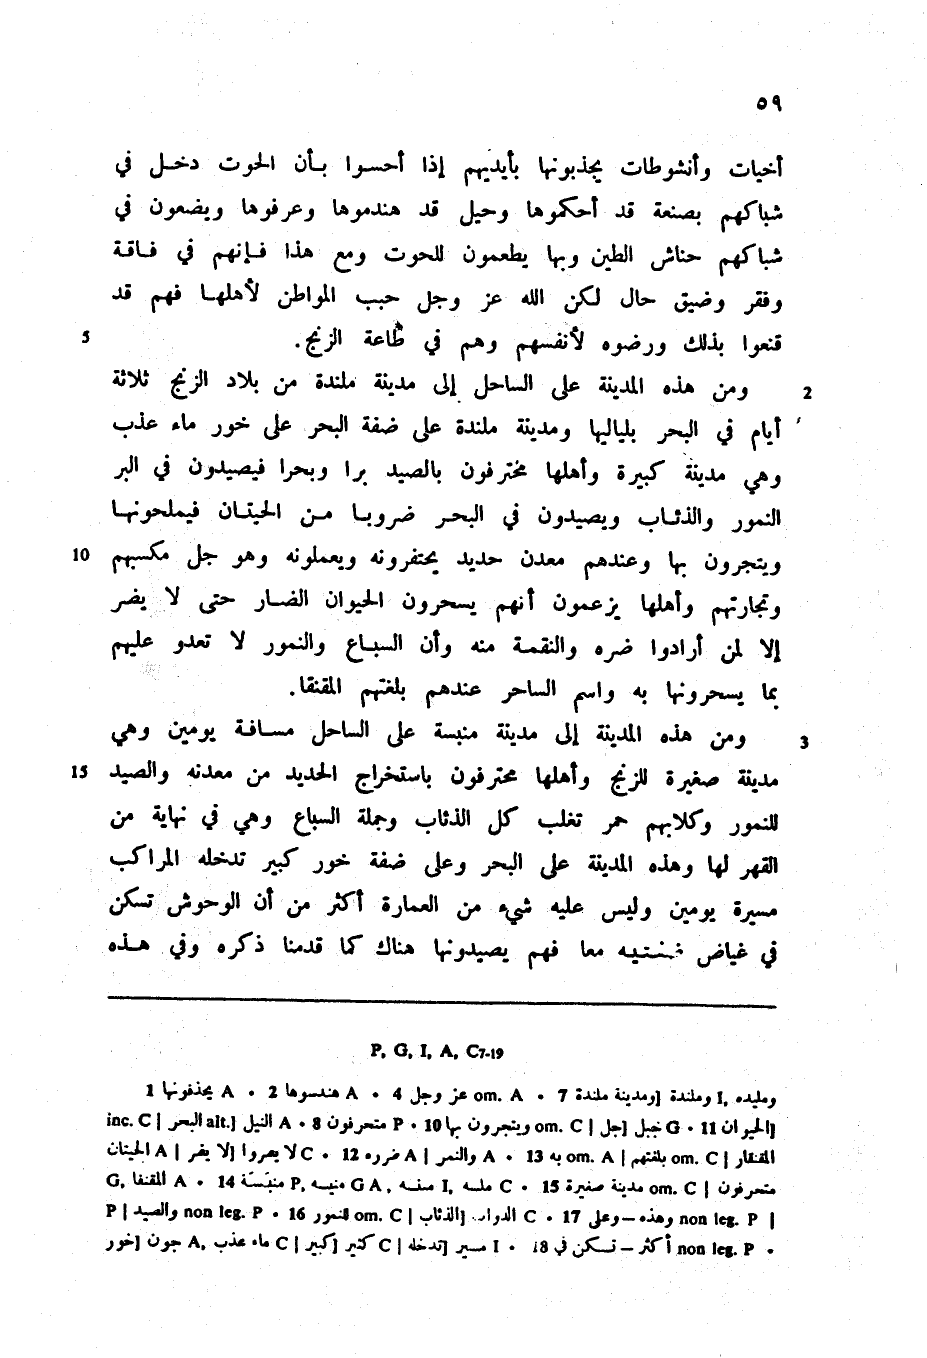 ٥٩
أخيات وأنشوطات يجذبونها بأيديهم إذا أحسوا بأن الحوت دخل في
شباكهم بصنعة قد أحكموها وحيل قد هندموها وعرفوها ويضعون في
شباكهم حناش الطين وبها يطعمون للحوت ومع هذا فإنهم في فاقة
وفقر وضيق حال لكن الله عز وجل حبب المواطن لأهلها فهم قد
5 قنعوا بذلك ورضوه لأنفسهم وهم في طاعة الزنج.
2 ومن هذه المدينة على الساحل إلى مدينة ملندة من بلاد الزنج ثلاثة
أيام في البحر بلياليها ومدينة ملندة على ضفة البحر على خور ماء عذب
وهي مدينة كبيرة وأهلها محترفون بالصيد برا وبحرا فيصيدون في البر
النمور والذئاب ويصيدون في البحر ضروبا من الحيتان فيملحونها
10 ويتجرون بها وعندهم معدن حديد يحتفرونه ويعملونه وهو جل مكسبهم
وتجارتهم وأهلها يزعمون أنهم يسحرون الحيوان الضار حتى لا يضر
إلا لمن أرادوا ضره والنقمة منه وأن السباع والنمور لا تعدو عليهم
بما يسحرونها به واسم الساحر عندهم بلغتهم المقنقا.
3 ومن هذه المدينة إلى مدينة منبسة على الساحل مسافة يومين وهي
15 مدينة صغيرة للزنج وأهلها محترفون باستخراج الحديد من معدنه والصيد
للنمور وكلابهم حمر تغلب كل الذئاب وجملة السباع وهي في نهاية من
القهر لها وهذه المدينة على البحر وعلى ضفة خور كبير تدخله المراكب
مسيرة يومين وليس عليه شيء من العمارة أكثر من أن الوحوش تسكن
في غياض معا فهم يصيدونها هناك كما قدمنا ذكره وفي هذه
P, G, I, A, C7-19
1 يجذفونها A • 2 هندسوها A • 4 عز وجل om. A • 7 ومدينة ملندة] وملندة I, ومليده
A • 8 النيل A • متحرفون P • 10 ويتجرون بها om. C | جل] جبل G • 11 الحيوان]
om. C | بلغتهم om. A | 13 به A • والنمر A | 12 ضرره C • لا يضر]
متحرفون om. C | 15 مدينة صغيرة C • 14 منبَسَة P, A • المقنفا G,
non leg. P | 17 وهذه – وعلى C • الذئاب] الدواب om. C | 16 للنمور non leg. P • والصيد P
non leg. P أكثر – تسكن في 18 • I تدخله] مسير C | كبير] كثير C | خور] جون A, ماء عذب